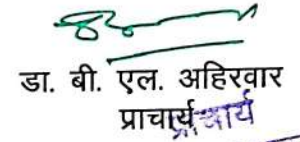 डा. बी. एल. अहिरवार
प्राचार्य
प्राचार्य